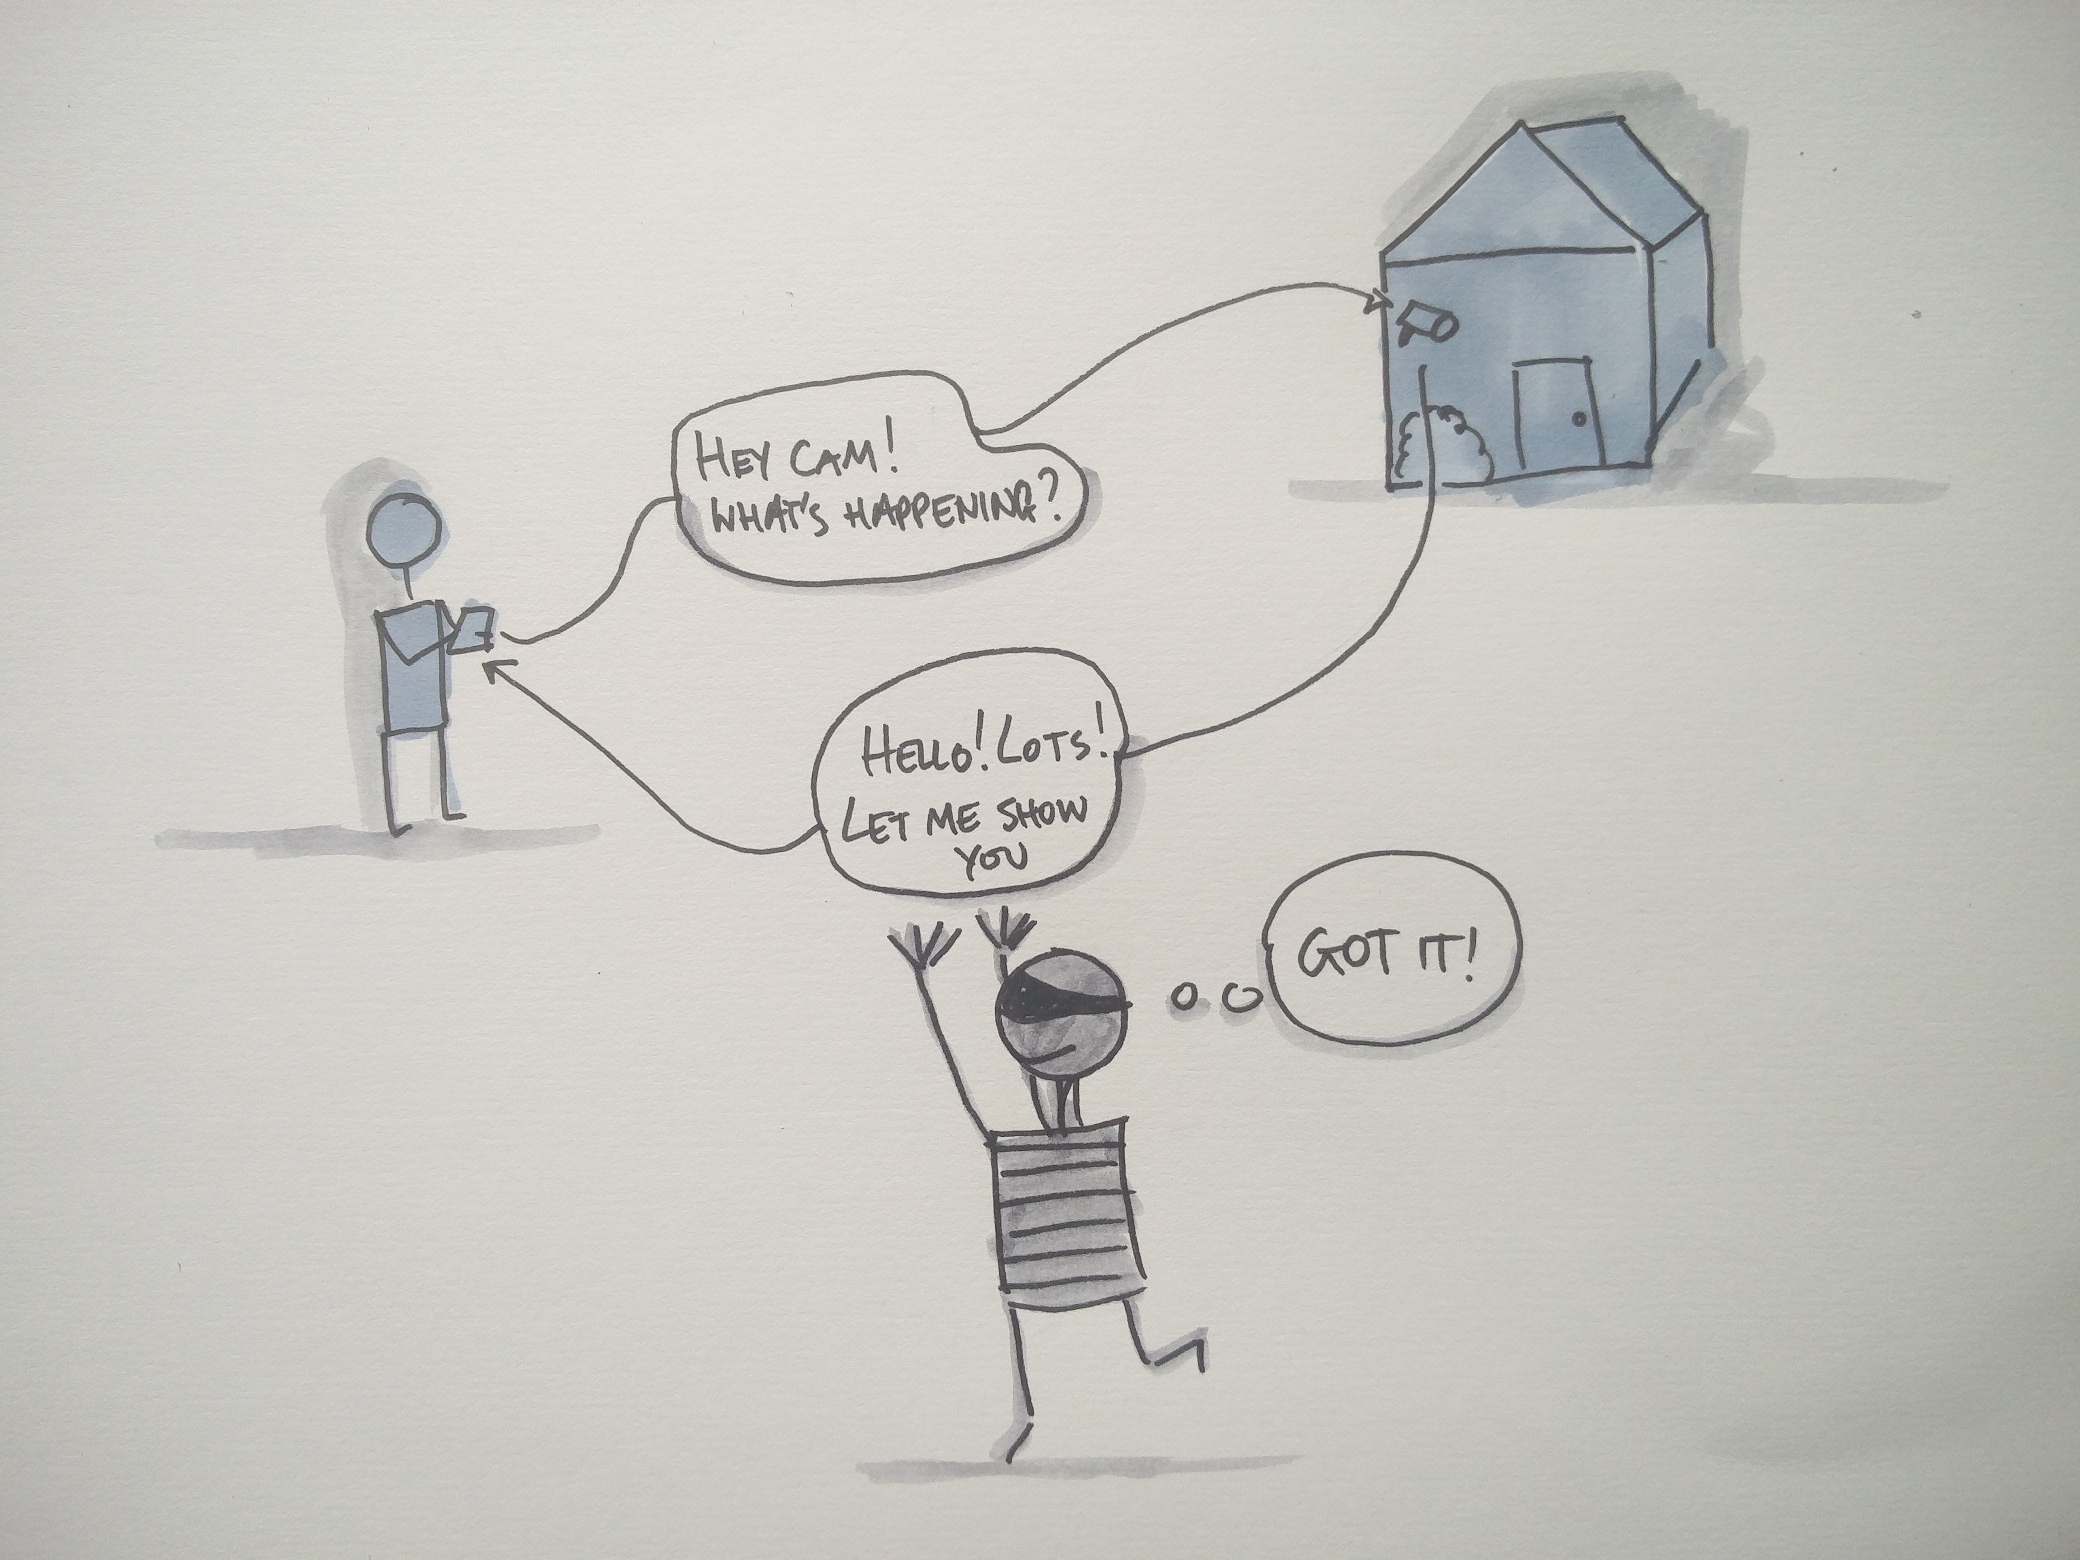 HEY CAM!
WHAT'S HAPPENING?
HELLO! LOTS!
LET ME SHOW
YOU
GOT IT!